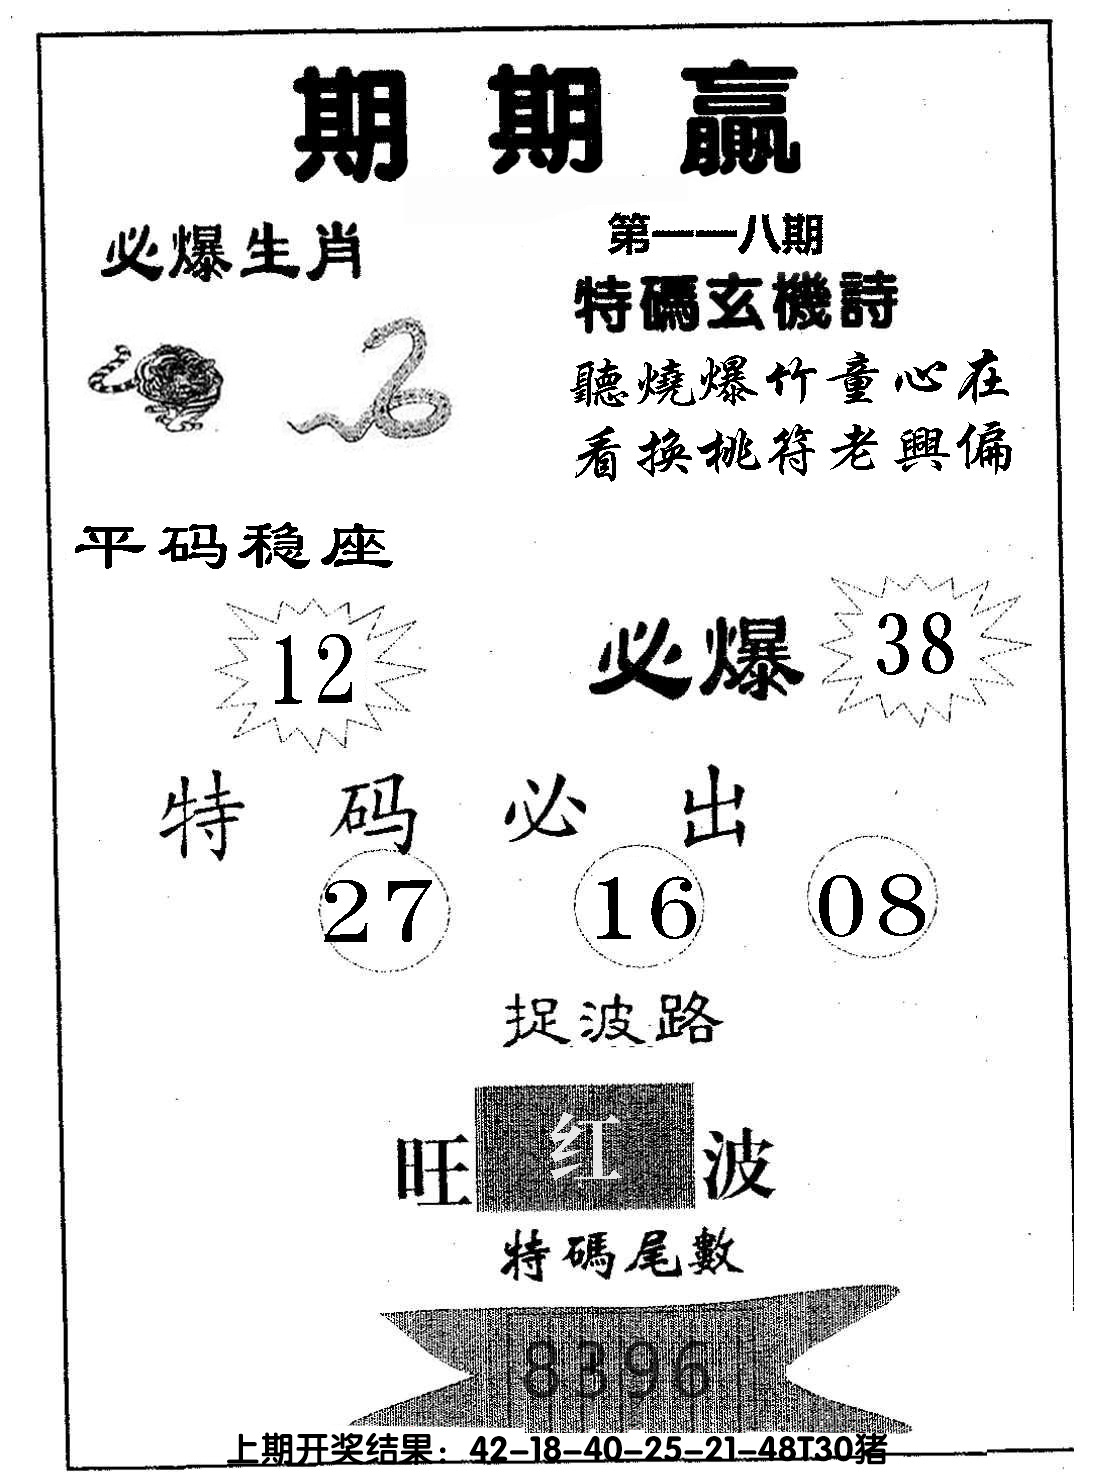 期期赢
必爆生肖
第一一八期
特碼玄機詩
聽燒爆竹童心在
看换桃符老興偏
平码稳座
12
必爆
38
特码必出
27 16 08
捉波路
旺红波
特碼尾數
8396
上期开奖结果：42-18-40-25-21-48T30猪